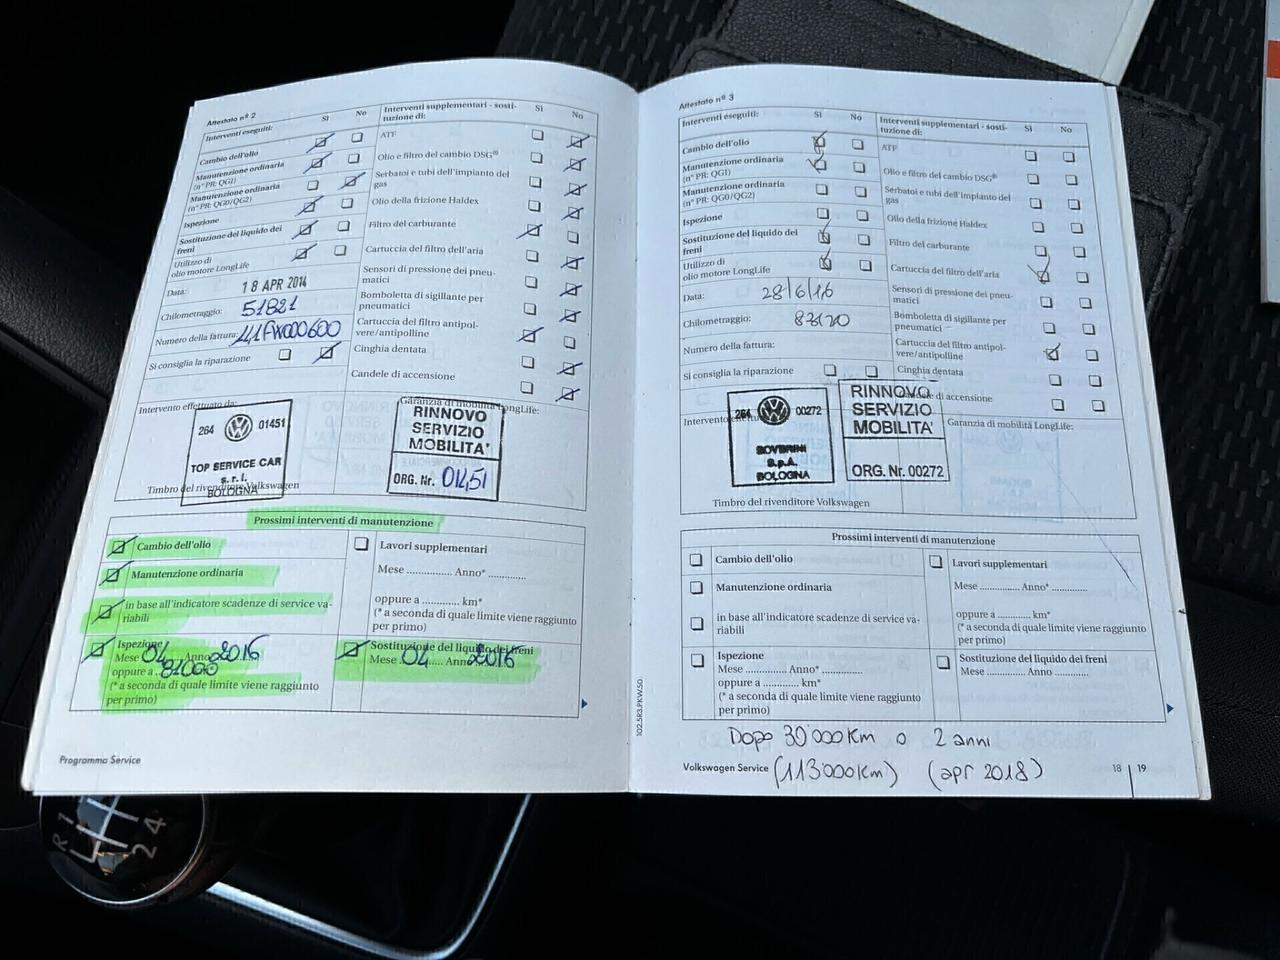 Attestato n° 2
Interventi eseguiti:
Sì
No
Cambio dell'olio
Manutenzione ordinaria
(n° PR: QG1)
Manutenzione ordinaria
(n° PR: QG0/QG2)
Ispezione
Sostituzione del liquido dei
freni
Utilizzo di
olio motore LongLife
Data:
18 APR 2014
Chilometraggio:
51821
Numero della fattura:
Si consiglia la riparazione
Interventi supplementari - sosti-
tuzione di:
Sì
No
ATF
Olio e filtro del cambio DSG®
Serbatoi e tubi dell'impianto del
gas
Olio della frizione Haldex
Filtro del carburante
Cartuccia del filtro dell'aria
Sensori di pressione dei pneu-
matici
Bomboletta di sigillante per
pneumatici
Cartuccia del filtro antipol-
vere/antipolline
Cinghia dentata
Candele di accensione
Intervento effettuato da:
264
01451
TOP SERVICE CAR
s.r.l.
BOLOGNA
Timbro del rivenditore Volkswagen
Garanzia di mobilità LongLife:
RINNOVO
SERVIZIO
MOBILITA'
ORG. Nr. 01451
Prossimi interventi di manutenzione
Cambio dell'olio
Manutenzione ordinaria
in base all'indicatore scadenze di service va-
riabili
Ispezione
Mese 04 Anno 2016
oppure a 81000
(* a seconda di quale limite viene raggiunto
per primo)
Lavori supplementari
Mese ............... Anno* .............
oppure a ............ km*
(* a seconda di quale limite viene raggiunto
per primo)
Sostituzione del liquido dei freni
Mese 04 Anno 2016
Programma Service
102.5R3.PKW.50
Attestato n° 3
Interventi eseguiti:
Sì
No
Cambio dell'olio
Manutenzione ordinaria
(n° PR: QG1)
Manutenzione ordinaria
(n° PR: QG0/QG2)
Ispezione
Sostituzione del liquido dei
freni
Utilizzo di
olio motore LongLife
Data:
28/6/16
Chilometraggio:
Numero della fattura:
Si consiglia la riparazione
Interventi supplementari - sosti-
tuzione di:
Sì
No
ATF
Olio e filtro del cambio DSG®
Serbatoi e tubi dell'impianto del
gas
Olio della frizione Haldex
Filtro del carburante
Cartuccia del filtro dell'aria
Sensori di pressione dei pneu-
matici
Bomboletta di sigillante per
pneumatici
Cartuccia del filtro antipol-
vere/antipolline
Cinghia dentata
Candele di accensione
264
00272
S.p.A.
BOLOGNA
Timbro del rivenditore Volkswagen
RINNOVO
SERVIZIO
MOBILITA'
ORG. Nr. 00272
Garanzia di mobilità LongLife:
Prossimi interventi di manutenzione
Cambio dell'olio
Manutenzione ordinaria
in base all'indicatore scadenze di service va-
riabili
Ispezione
Mese ............... Anno* ...............
oppure a ............... km*
(* a seconda di quale limite viene raggiunto
per primo)
Lavori supplementari
Mese ............... Anno* .............
oppure a ............ km*
(* a seconda di quale limite viene raggiunto
per primo)
Sostituzione del liquido dei freni
Mese ............... Anno ...............
Dopo 30'000 km o 2 anni
(113'000 km) (apr 2018)
Volkswagen Service
18 | 19
R 1
2 4